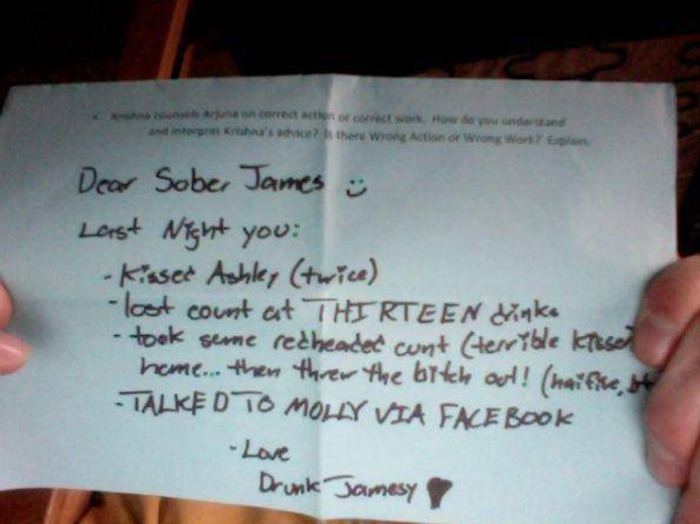 Krishna counsels Arjuna on correct action or correct work. How do you understand
and interpret Krishna's advice? Is there Wrong Action or Wrong Work? Explain.
Dear Sober James :)
Last Night you:
- Kissed Ashley (twice)
- lost count at THIRTEEN drinks
- took some redheaded cunt (terrible kisser
home... then threw the bitch out! (hai five,
- TALKED TO MOLLY VIA FACEBOOK
- Love
Drunk Jamesy